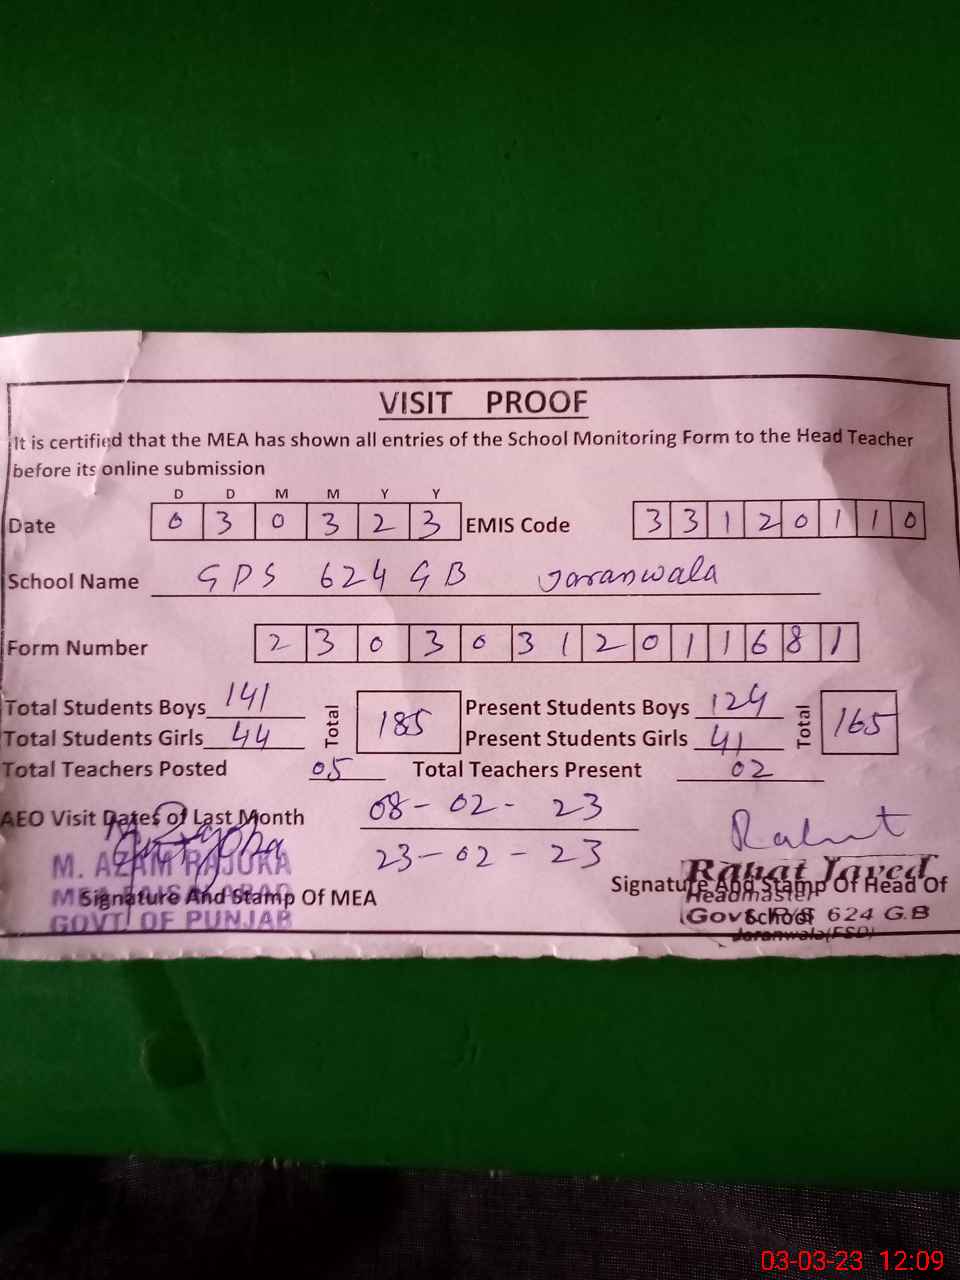 VISIT PROOF
It is certified that the MEA has shown all entries of the School Monitoring Form to the Head Teacher
before its online submission
D D M M Y Y
Date 0 3 0 3 2 3 EMIS Code 3 3 1 2 0 1 1 0
School Name GPS 624 GB Jaranwala
Form Number 2 3 0 3 0 3 1 2 0 1 1 6 8 1
Total Students Boys 141 Total 185 Present Students Boys 124 Total 165
Total Students Girls 44 Present Students Girls 41
Total Teachers Posted 05 Total Teachers Present 02
AEO Visit Dates of Last Month 08-02-23
23-02-23
Rahat
M. AZAM RAJOKA
Signature And Stamp Of MEA
GOVT OF PUNJAB
Rahat Javed
Signature And Stamp Of Head Of
Headmaster
School
Govt. P/S 624 G.B
Jaranwala(FSD)
03-03-23 12:09